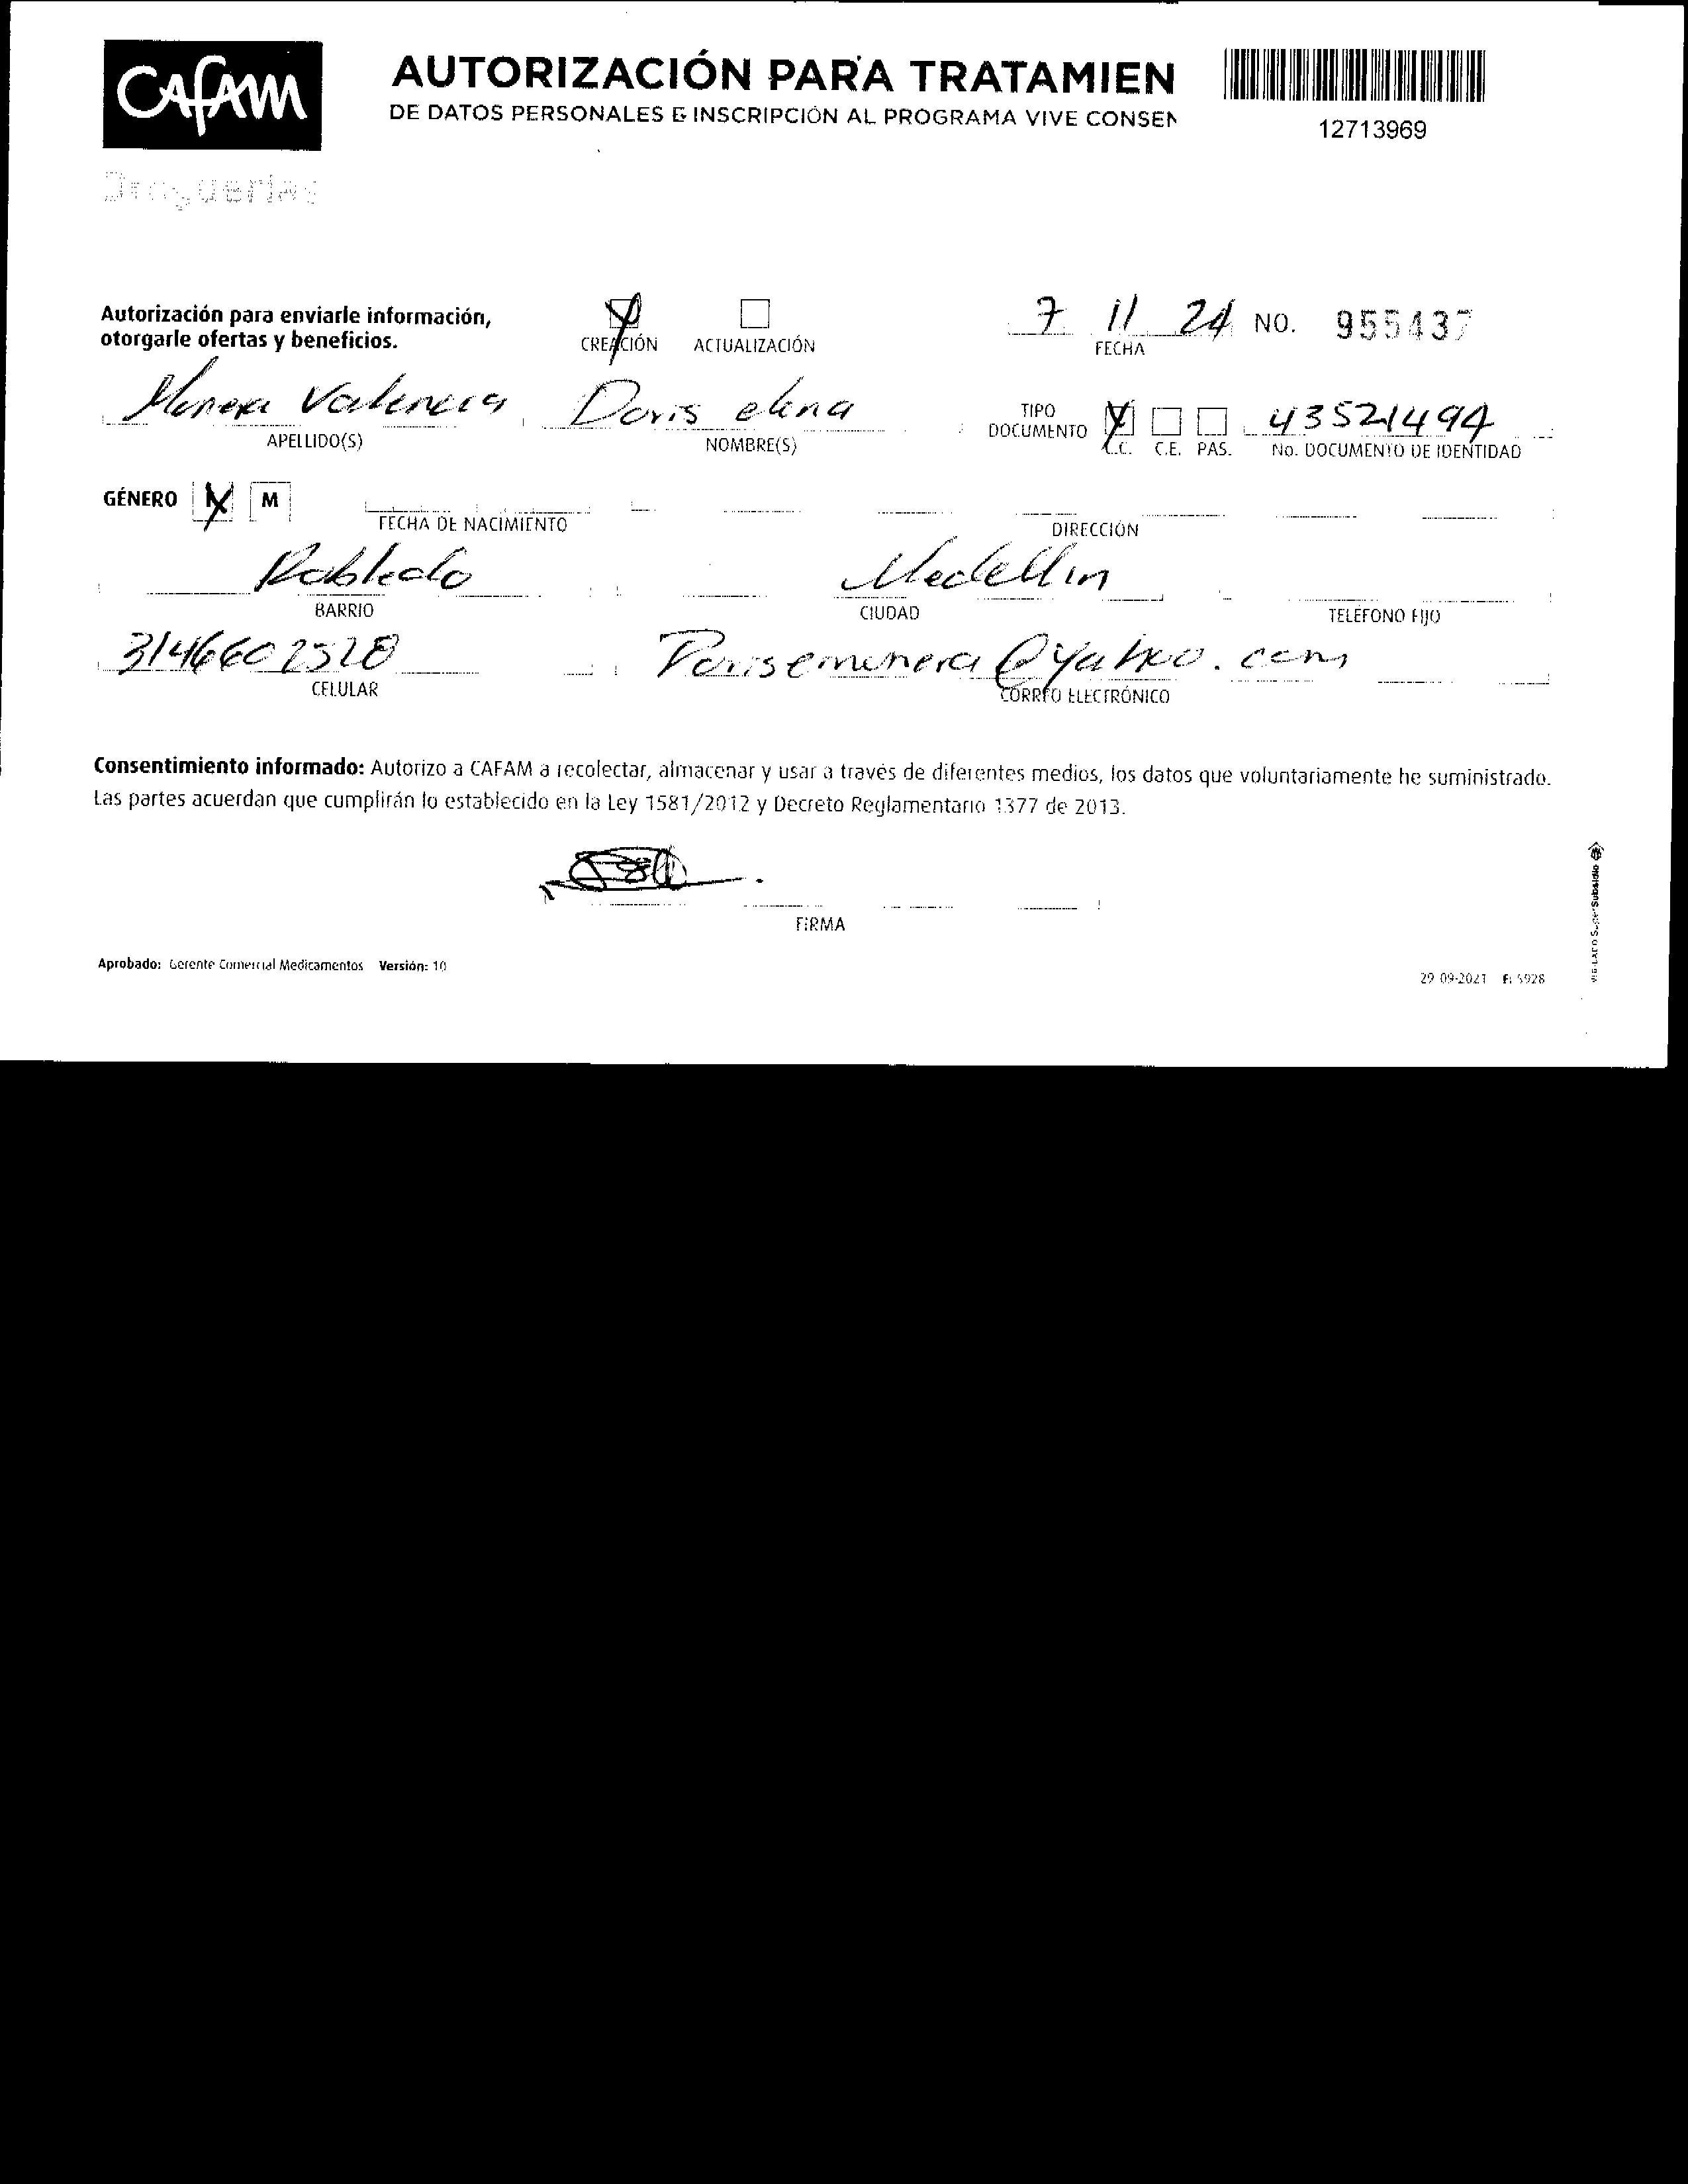 CAFAM
AUTORIZACIÓN PARA TRATAMIEN
DE DATOS PERSONALES & INSCRIPCIÓN AL PROGRAMA VIVE CONSEN
12713969
Droguerías
Autorización para enviarle información,
otorgarle ofertas y beneficios.
CREACIÓN ACTUALIZACIÓN
7 11 24 NO. 955437
FECHA
Valencia Doris elena
APELLIDO(S) NOMBRE(S)
TIPO
DOCUMENTO
C.C. C.E. PAS.
43521494
No. DOCUMENTO DE IDENTIDAD
GÉNERO M
FECHA DE NACIMIENTO DIRECCIÓN
Robledo Medellin
BARRIO CIUDAD TELÉFONO FIJO
3146602528 Dorisemunera@yahoo.com
CELULAR CORREO ELECTRÓNICO
Consentimiento informado: Autorizo a CAFAM a recolectar, almacenar y usar a través de diferentes medios, los datos que voluntariamente he suministrado.
Las partes acuerdan que cumplirán lo establecido en la Ley 1581/2012 y Decreto Reglamentario 1377 de 2013.
FIRMA
Aprobado: Gerente Comercial Medicamentos Versión: 10
29-09-2021 F: 5928
VIGILADO SuperSubsidio